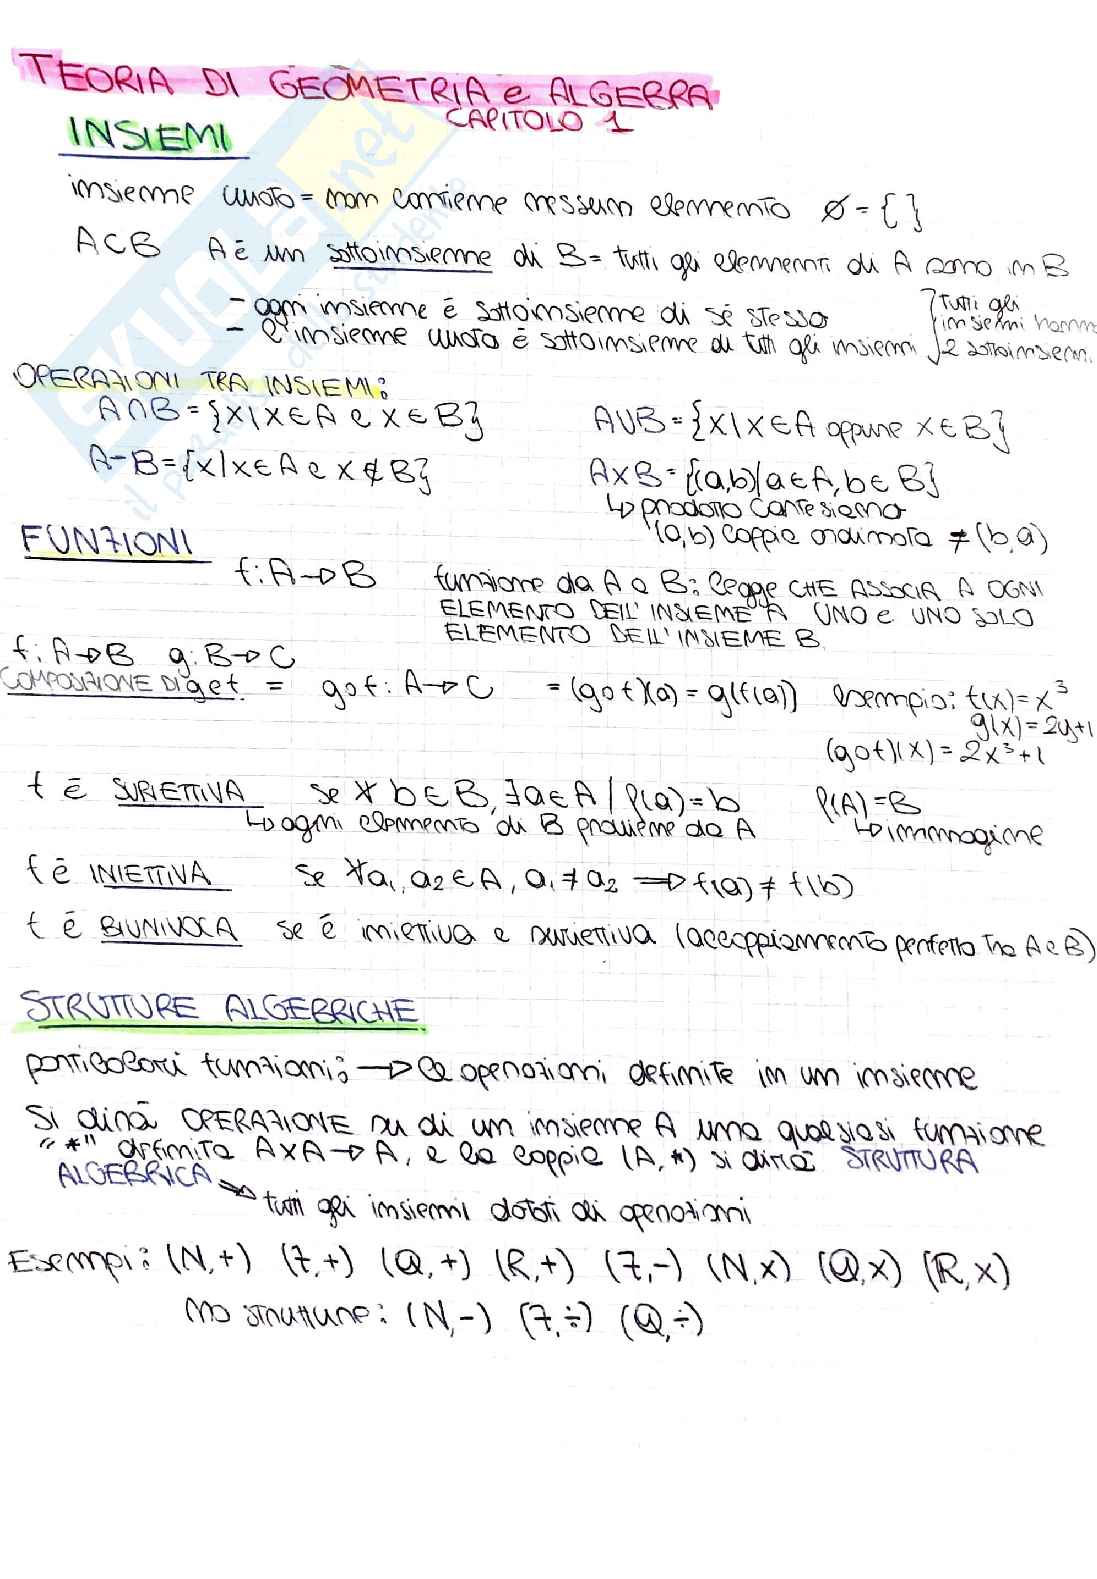 TEORIA DI GEOMETRIA e ALGEBRA
CAPITOLO 1
INSIEMI
insieme vuoto = non contiene nessun elemento ∅ = { }
A⊂B A è un sottoinsieme di B = tutti gli elementi di A sono in B
- ogni insieme è sottoinsieme di sé stesso
- l'insieme vuoto è sottoinsieme di tutti gli insiemi
tutti gli
insiemi hanno
2 sottoinsiem.
OPERAZIONI TRA INSIEMI:
A∩B = {x | x∈A e x∈B} A∪B = {x | x∈A oppure x∈B}
A-B = {x | x∈A e x∉B} A×B = {(a,b) | a∈A, b∈B}
↳ prodotto cartesiano
(a,b) coppia ordinata ≠ (b,a)
FUNZIONI
f: A→B funzione da A a B: legge CHE ASSOCIA A OGNI
ELEMENTO DELL'INSIEME A UNO e UNO SOLO
ELEMENTO DELL'INSIEME B
f: A→B g: B→C
COMPOSIZIONE DI g e f = g∘f : A→C = (g∘f)(a) = g(f(a)) esempio: f(x) = x³
g(x) = 2y+1
(g∘f)(x) = 2x³+1
f è SURIETTIVA se ∀ b∈B, ∃a∈A / f(a) = b f(A) = B
↳ ogni elemento di B proviene da A ↳ immagine
f è INIETTIVA se ∀a₁, a₂∈A, a₁≠a₂ ⟹ f(a) ≠ f(b)
f è BIUNIVOCA se è iniettiva e suriettiva (accoppiamento perfetto tra A e B)
STRUTTURE ALGEBRICHE
particolari funzioni: → le operazioni definite in un insieme
Si dirà OPERAZIONE su di un insieme A una qualsiasi funzione
"*" definita A×A→A, e la coppia (A,*) si dirà STRUTTURA
ALGEBRICA
→ tutti gli insiemi dotati di operazioni
Esempi: (N,+) (Z,+) (Q,+) (R,+) (Z,-) (N,x) (Q,x) (R,x)
no strutture: (N,-) (Z,÷) (Q,÷)
SKUOLA.net
il paradiso dello studente